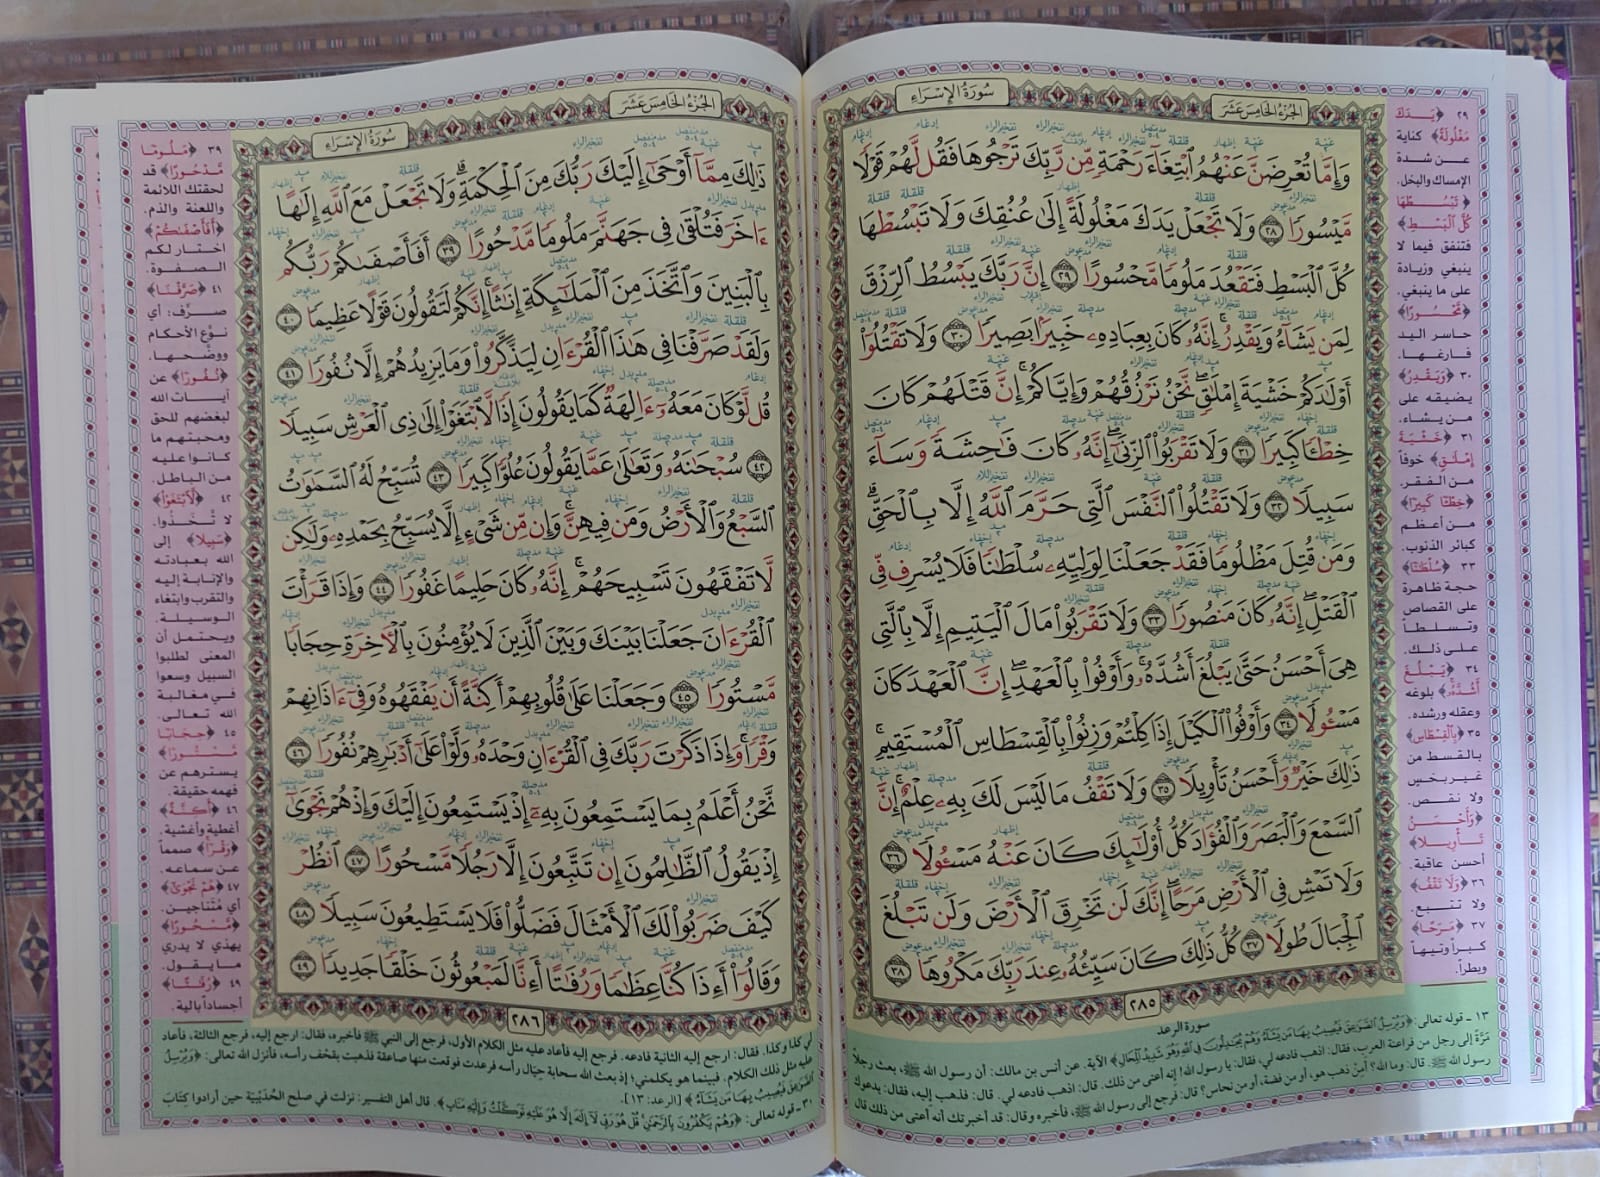 الجُزْءُ الخَامِسَ عَشَرَ
سُورَةُ الإِسْرَاءِ
وَإِمَّا تُعْرِضَنَّ عَنْهُمُ ٱبْتِغَآءَ رَحْمَةٍ مِّن رَّبِّكَ تَرْجُوهَا فَقُل لَّهُمْ قَوْلًا
مَّيْسُورًا ٢٨ وَلَا تَجْعَلْ يَدَكَ مَغْلُولَةً إِلَىٰ عُنُقِكَ وَلَا تَبْسُطْهَا
كُلَّ ٱلْبَسْطِ فَتَقْعُدَ مَلُومًا مَّحْسُورًا ٢٩ إِنَّ رَبَّكَ يَبْسُطُ ٱلرِّزْقَ
لِمَن يَشَآءُ وَيَقْدِرُ ۚ إِنَّهُۥ كَانَ بِعِبَادِهِۦ خَبِيرًۢا بَصِيرًا ٣٠ وَلَا تَقْتُلُوٓا۟
أَوْلَـٰدَكُمْ خَشْيَةَ إِمْلَـٰقٍ ۖ نَّحْنُ نَرْزُقُهُمْ وَإِيَّاكُمْ ۚ إِنَّ قَتْلَهُمْ كَانَ
خِطْـًٔا كَبِيرًا ٣١ وَلَا تَقْرَبُوا۟ ٱلزِّنَىٰٓ ۖ إِنَّهُۥ كَانَ فَـٰحِشَةً وَسَآءَ
سَبِيلًا ٣٢ وَلَا تَقْتُلُوا۟ ٱلنَّفْسَ ٱلَّتِى حَرَّمَ ٱللَّهُ إِلَّا بِٱلْحَقِّ ۗ
وَمَن قُتِلَ مَظْلُومًا فَقَدْ جَعَلْنَا لِوَلِيِّهِۦ سُلْطَـٰنًا فَلَا يُسْرِف فِّى
ٱلْقَتْلِ ۖ إِنَّهُۥ كَانَ مَنصُورًا ٣٣ وَلَا تَقْرَبُوا۟ مَالَ ٱلْيَتِيمِ إِلَّا بِٱلَّتِى
هِىَ أَحْسَنُ حَتَّىٰ يَبْلُغَ أَشُدَّهُۥ ۚ وَأَوْفُوا۟ بِٱلْعَهْدِ ۖ إِنَّ ٱلْعَهْدَ كَانَ
مَسْـُٔولًا ٣٤ وَأَوْفُوا۟ ٱلْكَيْلَ إِذَا كِلْتُمْ وَزِنُوا۟ بِٱلْقِسْطَاسِ ٱلْمُسْتَقِيمِ ۚ
ذَٰلِكَ خَيْرٌ وَأَحْسَنُ تَأْوِيلًا ٣٥ وَلَا تَقْفُ مَا لَيْسَ لَكَ بِهِۦ عِلْمٌ ۚ إِنَّ
ٱلسَّمْعَ وَٱلْبَصَرَ وَٱلْفُؤَادَ كُلُّ أُو۟لَـٰٓئِكَ كَانَ عَنْهُ مَسْـُٔولًا ٣٦
وَلَا تَمْشِ فِى ٱلْأَرْضِ مَرَحًا ۖ إِنَّكَ لَن تَخْرِقَ ٱلْأَرْضَ وَلَن تَبْلُغَ
ٱلْجِبَالَ طُولًا ٣٧ كُلُّ ذَٰلِكَ كَانَ سَيِّئُهُۥ عِندَ رَبِّكَ مَكْرُوهًا ٣٨
٢٨٥
٢٩ ﴿يَدَكَ
مَغْلُولَةً﴾ كناية
عن شدة
الإمساك والبخل.
﴿تَبْسُطْهَا
كُلَّ ٱلْبَسْطِ﴾
فتنفق فيما لا
ينبغي وزيادة
على ما ينبغي.
﴿مَّحْسُورًا﴾
حاسر اليد
فارغها.
٣٠ ﴿وَيَقْدِرُ﴾
يضيقه على
من يشاء.
٣١ ﴿خَشْيَةَ
إِمْلَـٰقٍ﴾ خوفاً
من الفقر.
﴿خِطْـًٔا كَبِيرًا﴾
من أعظم
كبائر الذنوب.
٣٣ ﴿سُلْطَـٰنًا﴾
حجة ظاهرة
على القصاص
وتسلطاً
على ذلك.
٣٤ ﴿يَبْلُغَ
أَشُدَّهُۥ﴾ بلوغه
وعقله ورشده.
٣٥ ﴿بِٱلْقِسْطَاسِ﴾
بالقسط من
غير بخسٍ
ولا نقص.
﴿وَأَحْسَنُ
تَأْوِيلًا﴾
أحسن عاقبة.
٣٦ ﴿وَلَا تَقْفُ﴾
ولا تتبع.
٣٧ ﴿مَرَحًا﴾
كبراً وتيهاً
وبطراً.
سورة الرعد
١٣ ـ قوله تعالى: ﴿وَيُرْسِلُ ٱلصَّوَٰعِقَ فَيُصِيبُ بِهَا مَن يَشَآءُ وَهُمْ يُجَـٰدِلُونَ فِى ٱللَّهِ وَهُوَ شَدِيدُ ٱلْمِحَالِ﴾ الآية. عن أنس بن مالك: أن رسول الله ﷺ، بعث رجلاً
مَرَّةً إلى رجل من فراعنة العرب، فقال: اذهب فادعه لي، فقال: يا رسول الله! إنه أعتى من ذلك. قال: اذهب فادعه لي. قال: فذهب إليه، فقال: يدعوك
رسول الله ﷺ. قال: وما الله؟ أمِنْ ذهب هو، أو من فضة، أو من نحاس؟ قال: فرجع إلى رسول الله ﷺ، فأخبره وقال: قد أخبرتك أنه أعتى من ذلك قال
الجُزْءُ الخَامِسَ عَشَرَ
سُورَةُ الإِسْرَاءِ
ذَٰلِكَ مِمَّآ أَوْحَىٰٓ إِلَيْكَ رَبُّكَ مِنَ ٱلْحِكْمَةِ ۗ وَلَا تَجْعَلْ مَعَ ٱللَّهِ إِلَـٰهًا
ءَاخَرَ فَتُلْقَىٰ فِى جَهَنَّمَ مَلُومًا مَّدْحُورًا ٣٩ أَفَأَصْفَىٰكُمْ رَبُّكُم
بِٱلْبَنِينَ وَٱتَّخَذَ مِنَ ٱلْمَلَـٰٓئِكَةِ إِنَـٰثًا ۚ إِنَّكُمْ لَتَقُولُونَ قَوْلًا عَظِيمًا ٤٠
وَلَقَدْ صَرَّفْنَا فِى هَـٰذَا ٱلْقُرْءَانِ لِيَذَّكَّرُوا۟ وَمَا يَزِيدُهُمْ إِلَّا نُفُورًا ٤١
قُل لَّوْ كَانَ مَعَهُۥٓ ءَالِهَةٌ كَمَا يَقُولُونَ إِذًا لَّٱبْتَغَوْا۟ إِلَىٰ ذِى ٱلْعَرْشِ سَبِيلًا
٤٢ سُبْحَـٰنَهُۥ وَتَعَـٰلَىٰ عَمَّا يَقُولُونَ عُلُوًّا كَبِيرًا ٤٣ تُسَبِّحُ لَهُ ٱلسَّمَـٰوَٰتُ
ٱلسَّبْعُ وَٱلْأَرْضُ وَمَن فِيهِنَّ ۚ وَإِن مِّن شَىْءٍ إِلَّا يُسَبِّحُ بِحَمْدِهِۦ وَلَـٰكِن
لَّا تَفْقَهُونَ تَسْبِيحَهُمْ ۗ إِنَّهُۥ كَانَ حَلِيمًا غَفُورًا ٤٤ وَإِذَا قَرَأْتَ
ٱلْقُرْءَانَ جَعَلْنَا بَيْنَكَ وَبَيْنَ ٱلَّذِينَ لَا يُؤْمِنُونَ بِٱلْـَٔاخِرَةِ حِجَابًا
مَّسْتُورًا ٤٥ وَجَعَلْنَا عَلَىٰ قُلُوبِهِمْ أَكِنَّةً أَن يَفْقَهُوهُ وَفِىٓ ءَاذَانِهِمْ
وَقْرًا ۚ وَإِذَا ذَكَرْتَ رَبَّكَ فِى ٱلْقُرْءَانِ وَحْدَهُۥ وَلَّوْا۟ عَلَىٰٓ أَدْبَـٰرِهِمْ نُفُورًا ٤٦
نَّحْنُ أَعْلَمُ بِمَا يَسْتَمِعُونَ بِهِۦٓ إِذْ يَسْتَمِعُونَ إِلَيْكَ وَإِذْ هُمْ نَجْوَىٰٓ
إِذْ يَقُولُ ٱلظَّـٰلِمُونَ إِن تَتَّبِعُونَ إِلَّا رَجُلًا مَّسْحُورًا ٤٧ ٱنظُرْ
كَيْفَ ضَرَبُوا۟ لَكَ ٱلْأَمْثَالَ فَضَلُّوا۟ فَلَا يَسْتَطِيعُونَ سَبِيلًا ٤٨
وَقَالُوٓا۟ أَءِذَا كُنَّا عِظَـٰمًا وَرُفَـٰتًا أَءِنَّا لَمَبْعُوثُونَ خَلْقًا جَدِيدًا ٤٩
٢٨٦
٣٩ ﴿مَلُومًا
مَّدْحُورًا﴾ قد
لحقتك اللائمة
واللعنة والذم.
﴿أَفَأَصْفَىٰكُمْ﴾
اختار لكم
الصفوة.
٤١ ﴿صَرَّفْنَا﴾
صرَّف: أي
نوَّع الأحكام
ووضّحها.
﴿نُفُورًا﴾ عن
آيات الله
لبغضهم للحق
ومحبتهم ما
كانوا عليه
من الباطل.
٤٢ ﴿لَّٱبْتَغَوْا۟﴾
لا تَّخذوا.
﴿سَبِيلًا﴾ إلى
الله بعبادته
والإنابة إليه
والتقرب وابتغاء
الوسيلة.
ويحتمل أن
المعنى لطلبوا
السبيل وسعوا
في مغالبة
الله تعالى.
٤٥ ﴿حِجَابًا
مَّسْتُورًا﴾
يسترهم عن
فهمه حقيقة.
٤٦ ﴿أَكِنَّةً﴾
أغطية وأغشية.
﴿وَقْرًا﴾ صمماً
عن سماعه.
٤٧ ﴿هُمْ نَجْوَىٰٓ﴾
أي مُتناجين.
﴿مَّسْحُورًا﴾
يهذي لا يدري
ما يقول.
٤٩ ﴿رُفَـٰتًا﴾
أجساداً بالية.
لي كذا وكذا. فقال: ارجع إليه الثانية فادعه. فرجع إليه فأعاد عليه مثل الكلام الأول، فرجع إلى النبي ﷺ فأخبره، فقال: ارجع إليه، فرجع الثالثة، فأعاد
عليه مثل ذلك الكلام. فبينما هو يكلمني؛ إذ بعث الله سحابة حِيَال رأسه فرعدت فوقعت منها صاعقة فذهبت بقحف رأسه، فأنزل الله تعالى: ﴿وَيُرْسِلُ
ٱلصَّوَٰعِقَ فَيُصِيبُ بِهَا مَن يَشَآءُ﴾ [الرعد: ١٣].
٣٠ ـ قوله تعالى: ﴿وَهُمْ يَكْفُرُونَ بِٱلرَّحْمَـٰنِ ۚ قُلْ هُوَ رَبِّى لَآ إِلَـٰهَ إِلَّا هُوَ عَلَيْهِ تَوَكَّلْتُ وَإِلَيْهِ مَتَابِ﴾. قال أهل التفسير: نزلت في صلح الحُدَيْبِيَة حين أرادوا كِتَابَ